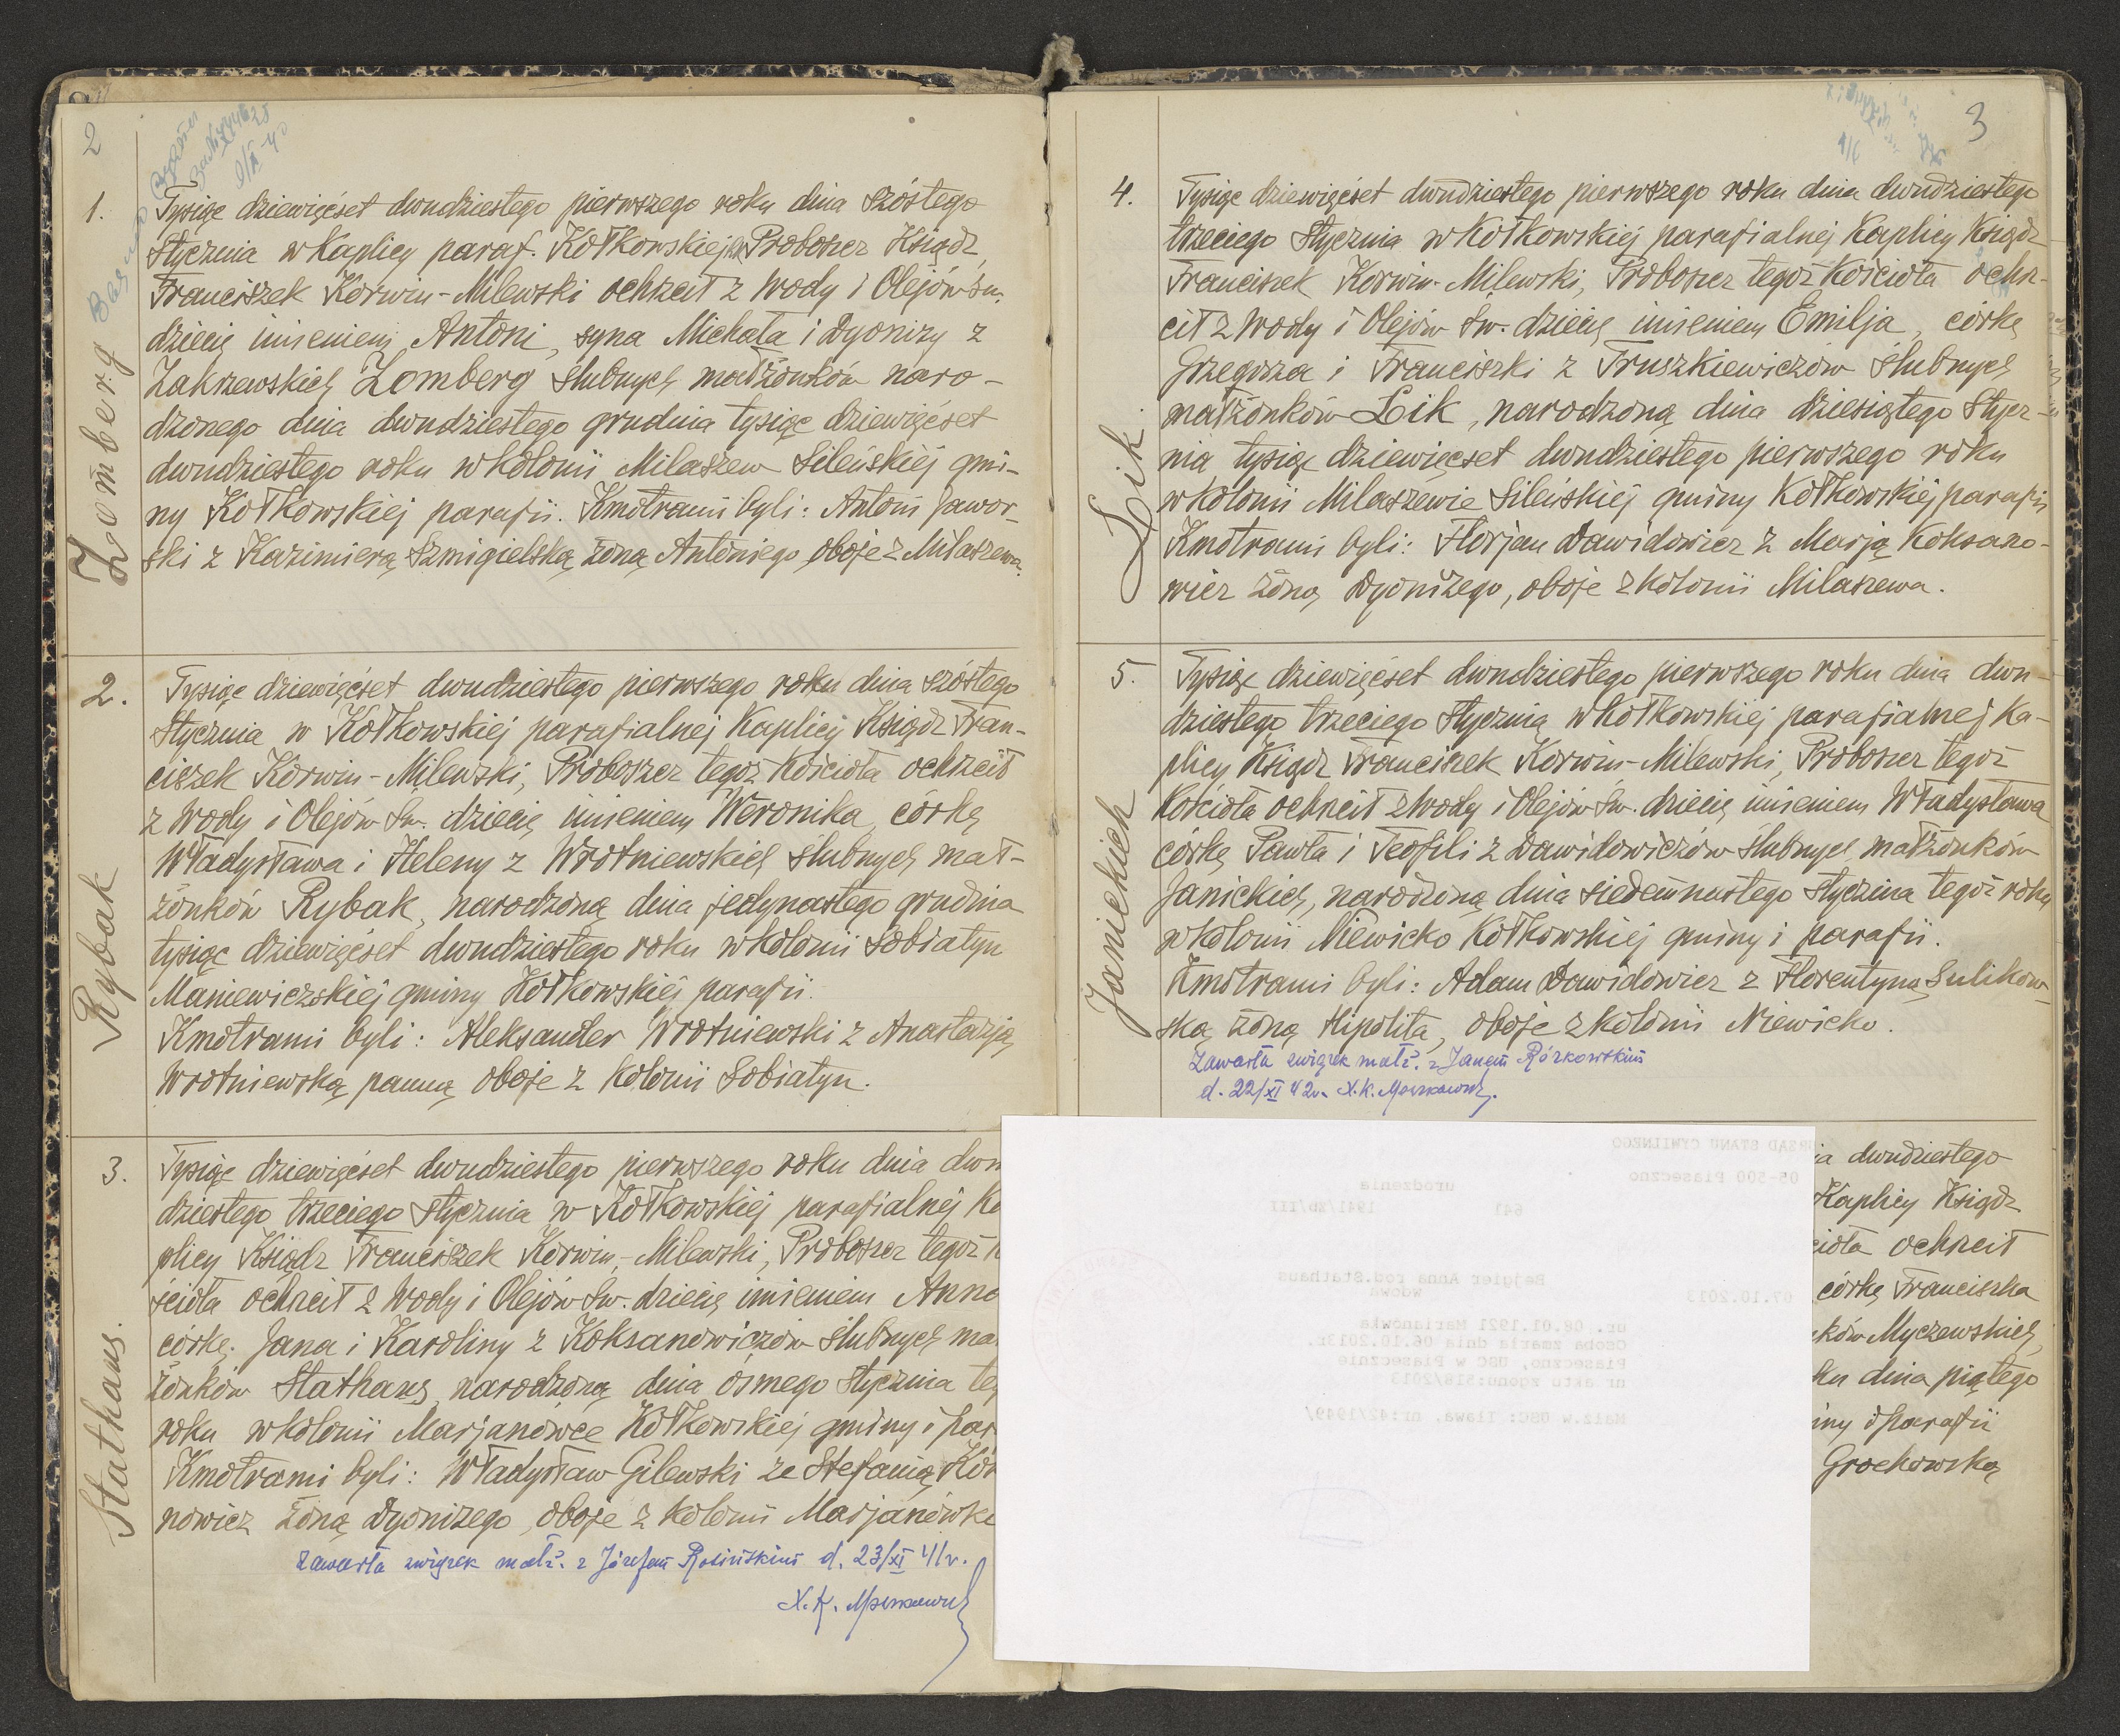 2
1.
Zomberg
Tysiąc dziewięćset dwudziestego pierwszego roku dnia szóstego
Stycznia w Kaplicy paraf. Kołkowskiej Proboszcz Ksiądz
Franciszek Korwin-Milewski ochrzcił z Wody i Olejów Św.
dziecię imieniem Antoni, syna Michała i Dyonizy z
Zakrzewskich Zomberg ślubnych małżonków naro-
dzonego dnia dwudziestego grudnia tysiąc dziewięćset
dwudziestego roku w kolonii Milaszew Sileńskiej gmi-
ny Kołkowskiej parafii. Kmotrami byli: Antoni Jawor-
ski z Kazimierą Szmigielską żoną Antoniego, oboje z Milaszewa.
2.
Rybak
Tysiąc dziewięćset dwudziestego pierwszego roku dnia szóstego
Stycznia w Kołkowskiej parafialnej Kaplicy Ksiądz Fran-
ciszek Korwin-Milewski, Proboszcz tegoż Kościoła ochrzcił
z Wody i Olejów Św. dziecię imieniem Weronika, córkę
Władysława i Heleny z Wrotniewskich ślubnych mał-
żonków Rybak, narodzoną dnia jedynastego grudnia
tysiąc dziewięćset dwudziestego roku w kolonii Sobiatyn
Maniewiczskiej gminy Kołkowskiej parafii.
Kmotrami byli: Aleksander Wrotniewski z Anastazją
Wrotniewską panną oboje z Kolonii Sobiatyn.
3.
Stathaus.
Tysiąc dziewięćset dwudziestego pierwszego roku dnia dwu
dziestego trzeciego Stycznia w Kołkowskiej parafialnej Ka
plicy Ksiądz Franciszek Korwin-Milewski, Proboszcz tegoż K
ścioła ochrzcił z Wody i Olejów Św. dziecię imieniem Anna
córkę Jana i Karoliny z Koksanowiczów ślubnych ma
żonków Stathaus, narodzoną dnia ósmego Stycznia teg
roku w kolonii Marjanówce Kołkowskiej gminy i par
Kmotrami byli: Władysław Gilewski ze Stefanią Kok
nowicz żoną Dyonizego, oboje z kolonii Marjanówk
zawarła związek małż. z Józefem Rosińskim d. 23/XI 41r.
X. K.
3
4.
Lik.
Tysiąc dziewięćset dwudziestego pierwszego roku dnia dwudziestego
trzeciego Stycznia w Kołkowskiej parafialnej Kaplicy Ksiądz
Franciszek Korwin-Milewski, Proboszcz tegoż Kościoła ochrz-
cił z Wody i Olejów Św. dziecię imieniem Emilja, córkę
Grzegorza i Franciszki z Truszkiewiczów ślubnych
małżonków Lik, narodzoną dnia dziesiątego Stycz-
nia tysiąc dziewięćset dwudziestego pierwszego roku
w kolonii Milaszewie Sileńskiej gminy Kołkowskiej parafii
Kmotrami byli: Florjan Dawidowicz z Marją Koksano-
wicz żoną Dyonizego, oboje z kolonii Milaszewa.
5.
Janickich
Tysiąc dziewięćset dwudziestego pierwszego roku dnia dwu-
dziestego trzeciego Stycznia w Kołkowskiej parafialnej Ka-
plicy Ksiądz Franciszek Korwin-Milewski, Proboszcz tegoż
Kościoła ochrzcił z Wody i Olejów Św. dziecię imieniem Władysława
córkę Pawła i Teofili z Dawidowiczów ślubnych małżonków
Janickich, narodzoną dnia siedemnastego Stycznia tegoż roku
w kolonii Niewicko Kołkowskiej gminy i parafii.
Kmotrami byli: Adam Dawidowicz z Florentyną Sulikow-
ską żoną Hipolita, oboje z kolonii Niewicko.
Zawarła związek małż. z Janem Rózkowskim
d. 22/XI 42r. X. K.
ia dwudziestego
Kaplicy Ksiądz
cioła ochrzcił
córkę Franciszka
ków Myczewskich,
ku dnia piątego
iny i parafii
Grochowską
URZĄD STANU CYWILNEGO
05-500 Piaseczno
urodzenia
641 1941/ZD/III
Bejgier Anna rod.Stathaus
wdowa
07.10.2013
ur. 08.01.1921 Marianówka
Osoba zmarła dnia 06.10.2013r.
Piaseczno, USC w Piasecznie
nr aktu zgonu:518/2013
Małż.w USC: Iława, nr:42/1949/